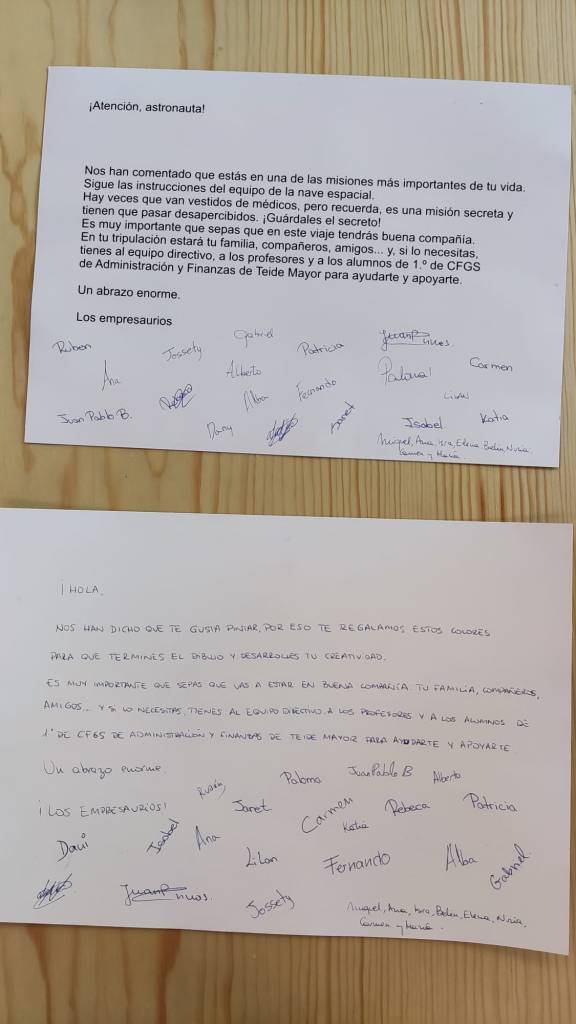 ¡Atención, astronauta!
Nos han comentado que estás en una de las misiones más importantes de tu vida.
Sigue las instrucciones del equipo de la nave espacial.
Hay veces que van vestidos de médicos, pero recuerda, es una misión secreta y
tienen que pasar desapercibidos. ¡Guárdales el secreto!
Es muy importante que sepas que en este viaje tendrás buena compañía.
En tu tripulación estará tu familia, compañeros, amigos... y, si lo necesitas,
tienes al equipo directivo, a los profesores y a los alumnos de 1.º de CFGS
de Administración y Finanzas de Teide Mayor para ayudarte y apoyarte.
Un abrazo enorme.
Los empresaurios
Ruben Jossety Gabriel Patricia
Ana Alberto Paloma Carmen
Juan Pablo B. Alba Fernando
Dany Janet Isabel Katia
Miguel, Ana, Isra, Elena, Belén, Nuria,
Carmen y María
¡HOLA,
NOS HAN DICHO QUE TE GUSTA PINTAR, POR ESO TE REGALAMOS ESTOS COLORES
PARA QUE TERMINES EL DIBUJO Y DESARROLLES TU CREATIVIDAD.
ES MUY IMPORTANTE QUE SEPAS QUE VAS A ESTAR EN BUENA COMPAÑÍA. TU FAMILIA, COMPAÑEROS,
AMIGOS... Y SI LO NECESITAS, TIENES AL EQUIPO DIRECTIVO, A LOS PROFESORES Y A LOS ALUMNOS DE
1º DE CFGS DE ADMINISTRACIÓN Y FINANZAS DE TEIDE MAYOR PARA AYUDARTE Y APOYARTE
Un abrazo enorme.
¡LOS EMPRESAURIOS!
Rubén Paloma Juan Pablo B Alberto
Janet Carmen Rebeca Patricia
Isabel Ana Katia
Lilan Fernando Alba Gabriel
Jossety
Miguel, Ana, Isra, Belén, Elena, Nuria,
Carmen y María.